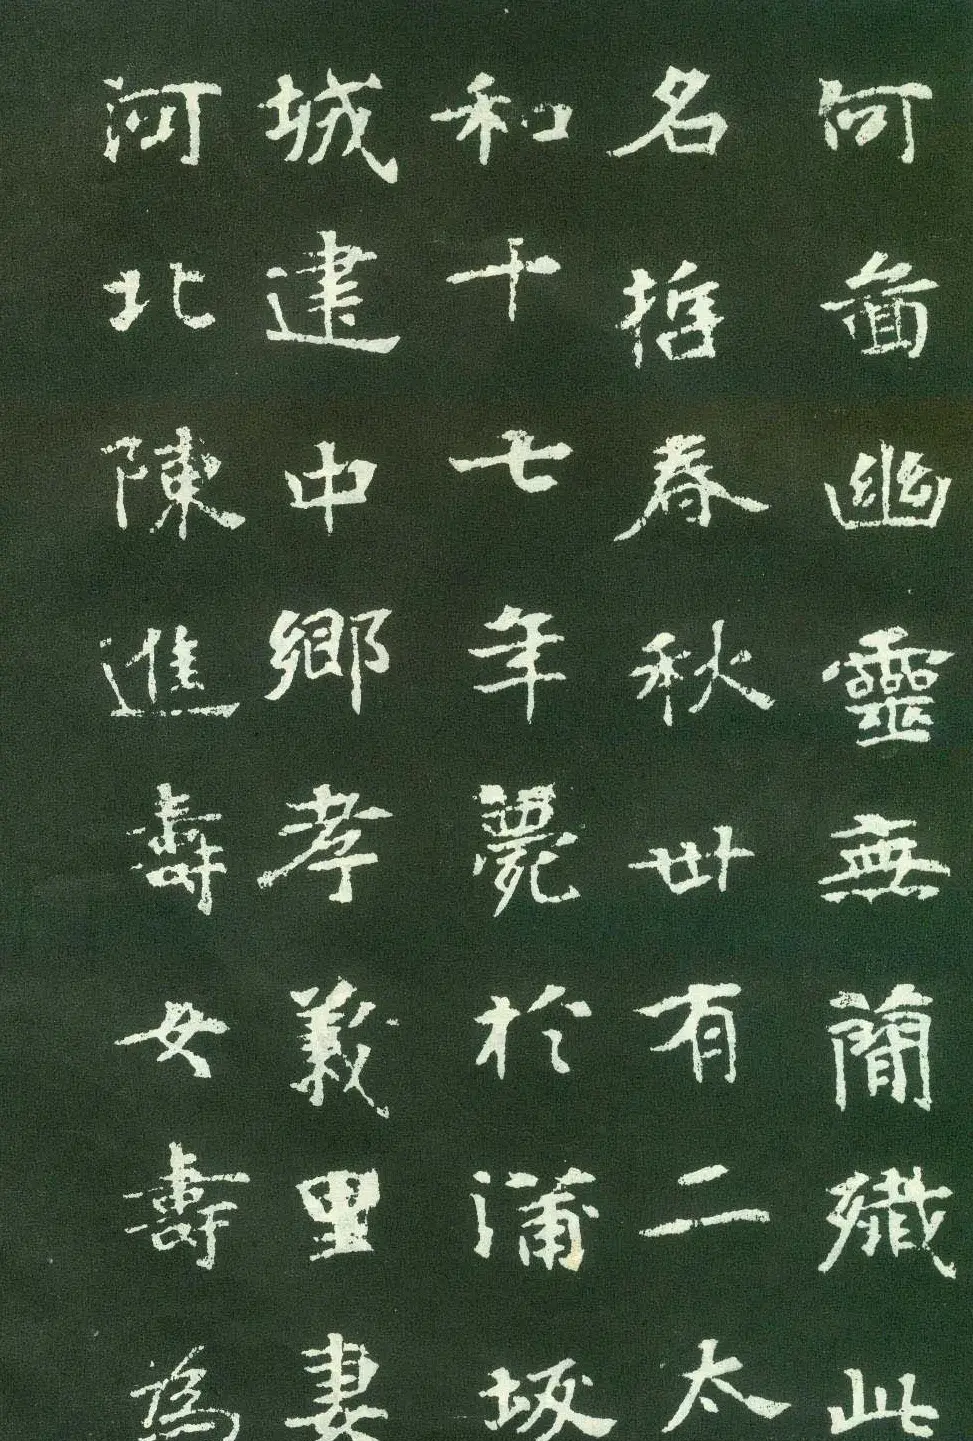 何啚幽靈無簡殲此
名哲春秋卌有二太
和十七年薨於蒲坂
城建中鄉孝義里妻
河北陳進壽女壽為